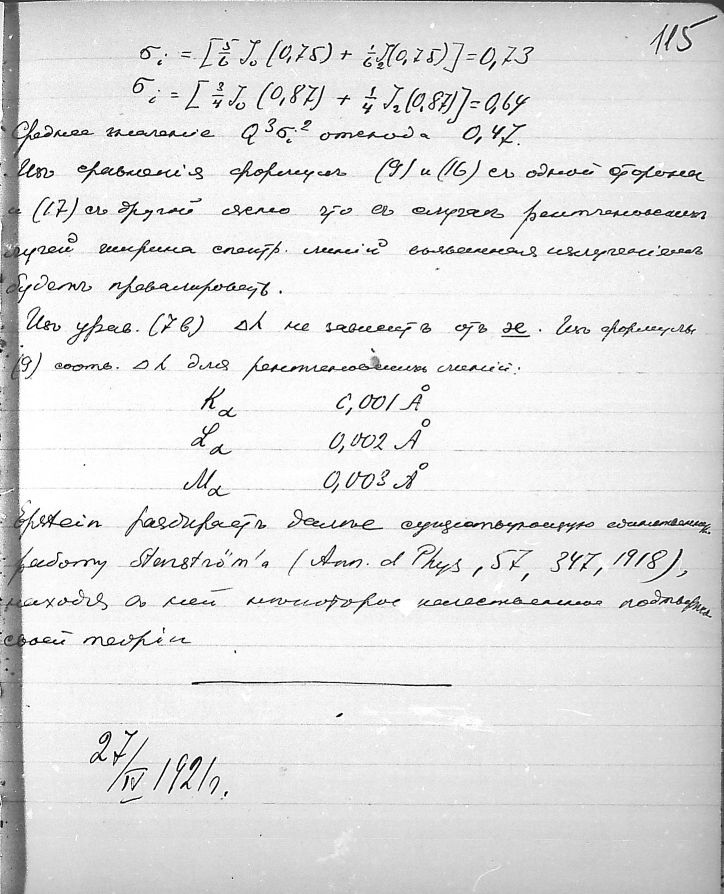 115
σi = [5/6 J₀ (0,75) + 1/6 J₂(0,75)] = 0,73
σi = [3/4 J₀ (0,87) + 1/4 J₂(0,87)] = 0,64
Среднее значеніе Q³σi² отсюда 0,47.
Изъ сравненія формулъ (9) и (16) съ одной стороны
и (17) съ другой ясно что въ случаѣ рентгеновскихъ
лучей ширина спектр. линій вызванная излученіемъ
будетъ превалировать.
Изъ урав. (7в) Δλ не зависитъ отъ ϰ. Изъ формулы
(9) соотв. Δλ для рентгеновскихъ линій:
Kα 0,001 Å
Lα 0,002 Å
Mα 0,003 Å
Epstein разбираетъ далѣе существующую единственную
работу Stenström'a (Ann. d Phys, 57, 347, 1918),
находя въ ней нѣкоторое качественное
своей теоріи
27/IV 1921г.